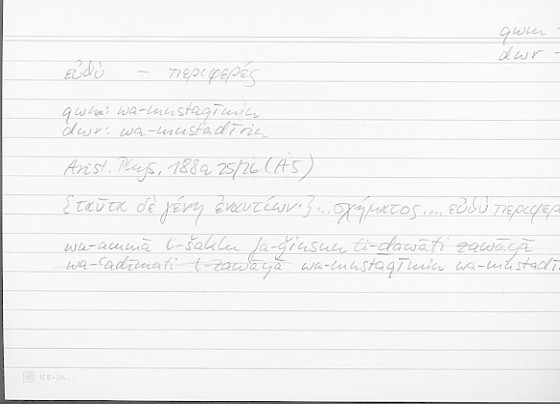 qwm
dwr
εὐθύ – περιφερές
qwm: wa-mustaqīmin
dwr: wa-mustadīrin
Arist. Phys. 188a 25/26 (A5)
{ταῦτα δὲ γένη ἐναντίων·} ... σχήματος ... εὐθύ περιφερ
wa-ammā l-šaklu fa-ǧinsun li-ḏawāti zawāyā
wa-ʿadīmati l-zawāyā wa-mustaqīmin wa-mustadī